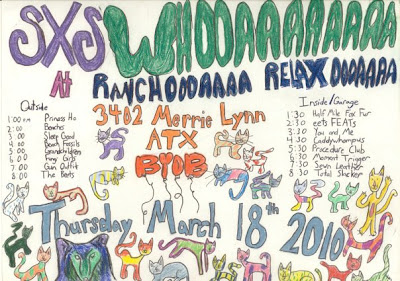 SXSWHOOAAAAAAAAA
At RANCHOOOAAAA RELAXOOOAAAA
Outside
1:00 pm Princess Ho
2:00 Beaches
3:00 Sleep Good
4:00 Beach Fossils
5:00 Grandchildren
6:00 Frog Girls
7:00 Gun Outfit
8:00 The Beets
3402 Merrie Lynn
ATX
BYOB
Inside/Garage
1:30 Half Mile Fox Fur
2:30 eets FEATs
3:30 You and Me
4:30 Caddywhampus
5:30 Price day Club
6:30 Moment Trigger
7:30
8:30 Total Slacker
Thursday March 18th 2010